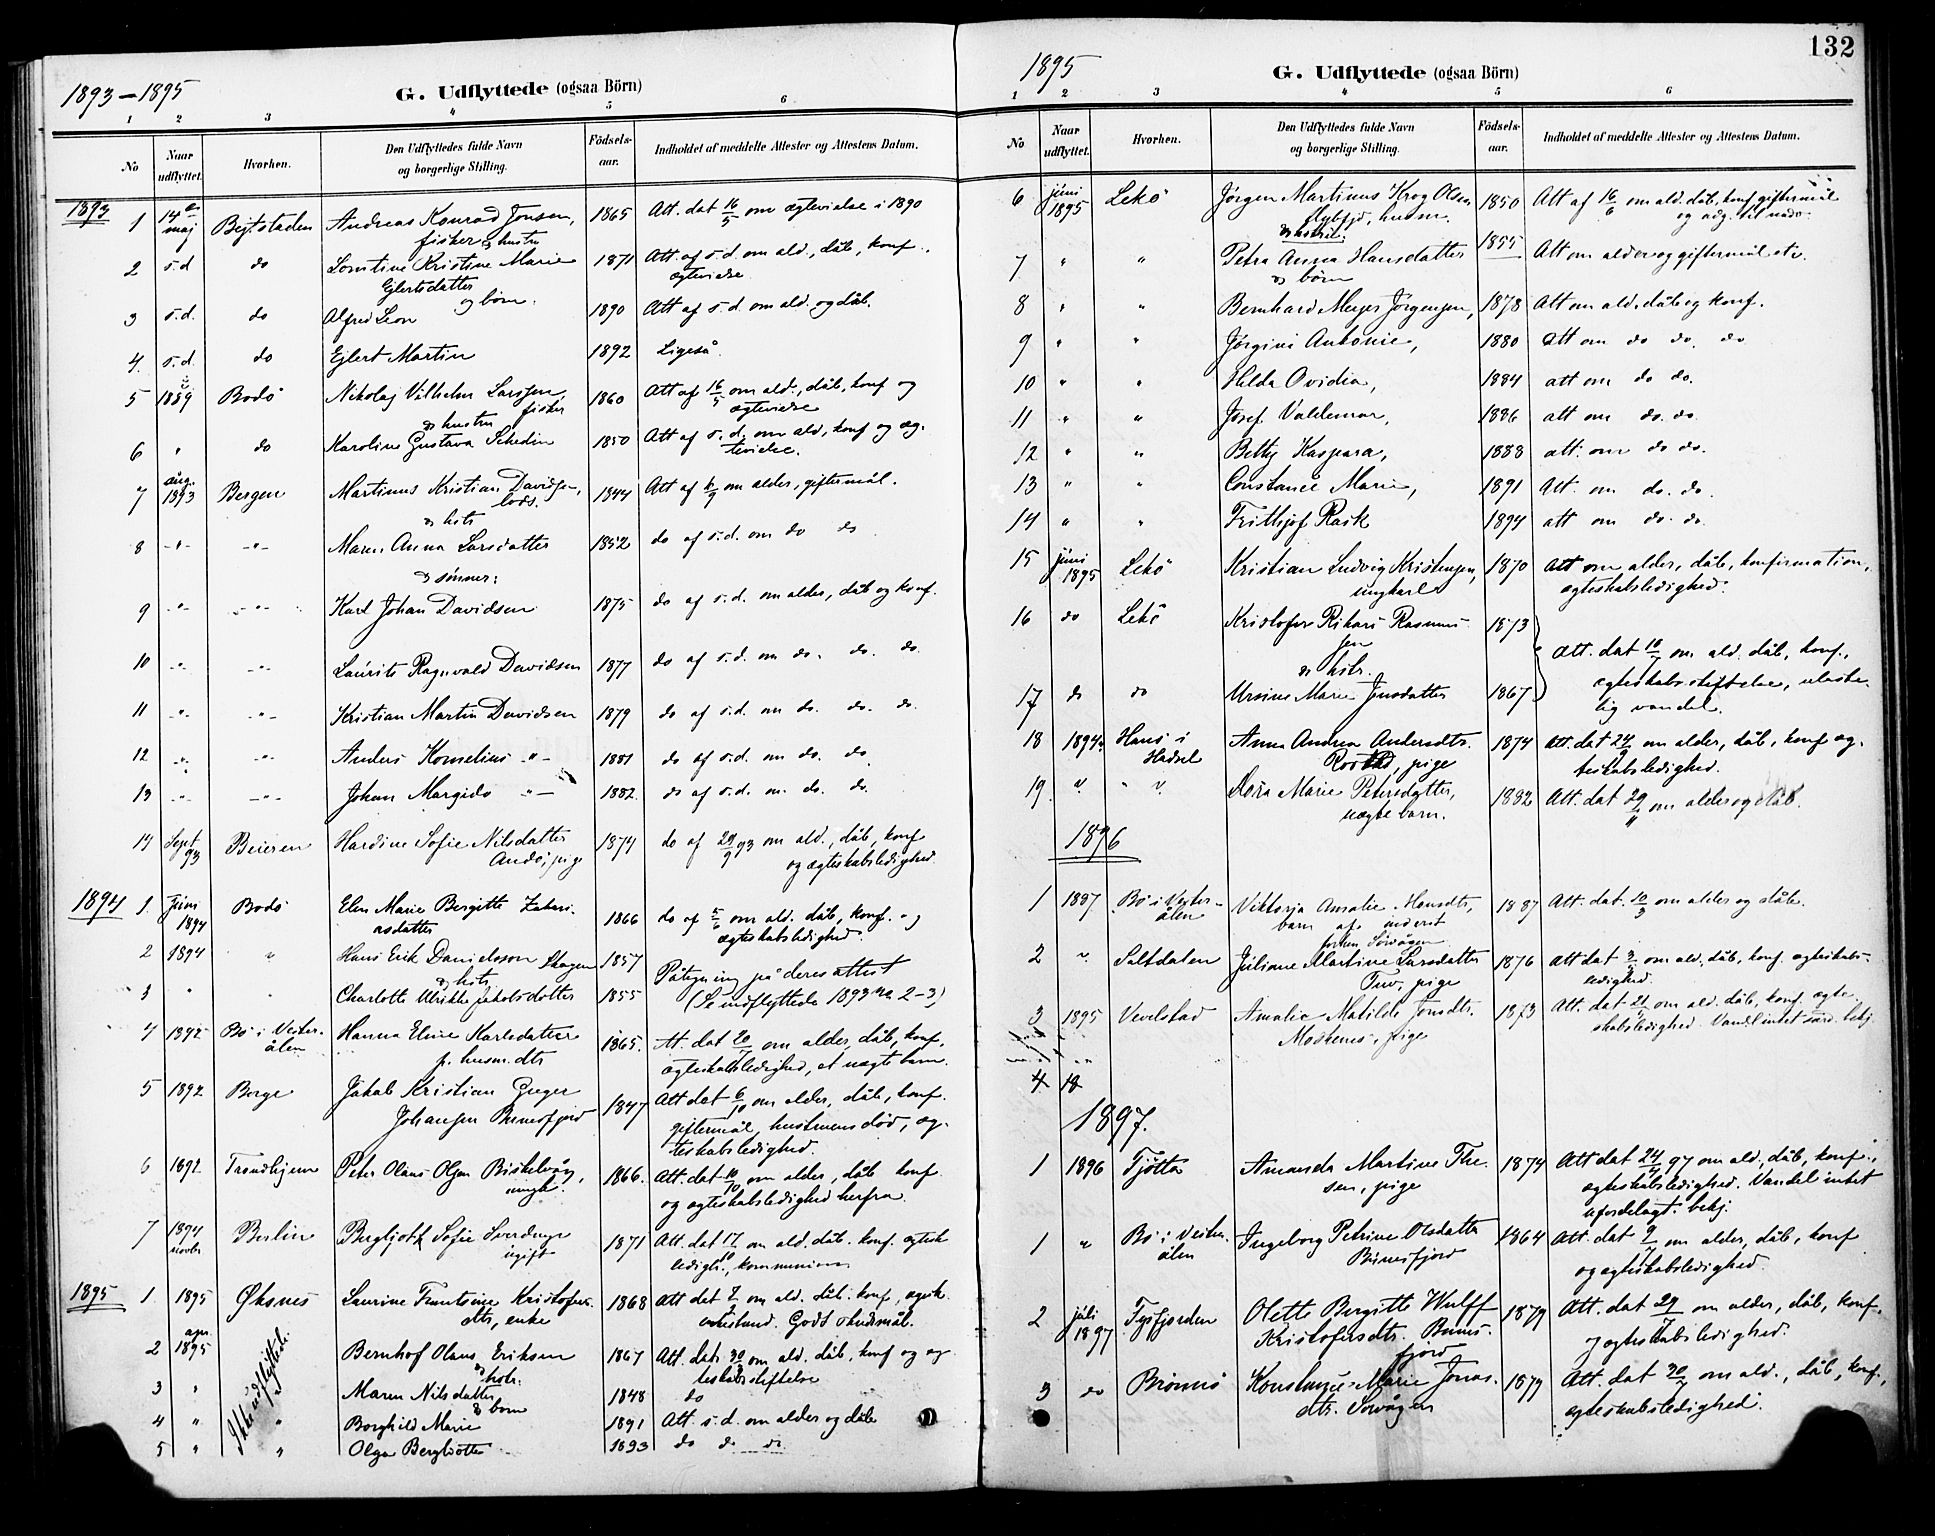 1893–1895
G. Udflyttede (ogsaa Börn)
1 2 3 4 5 6
No Naar udflyttet. Hvorhen. Den Udflyttedes fulde Navn og borgerlige Stilling. Födsels-aar. Indholdet af meddelte Attester og Attestens Datum.
1893 1 14de maj Bejtstaden Andreas Konrad Jonsen, 1865 Att. dat 16/5 om ægtevielse i 1890
fisker & hustru
2 s.d. do Kristine Marie 1871 Att. af s.d. om ald., dåb, konf.,
Ejlertsdatter ægtevielse
og børn.
3 s.d. do Alfred Leon 1890 Att af s.d. om ald. og dåb.
4. s.d. do Ejlert Martin 1892 Ligeså.
5 1889 Bodö Nikolaj Vilhelm Larssen, 1860 Att af 16/5 om ald., dåb, konf og
fisker ægtevielse
& hustru
6 " do Karoline Gustava Schedin 1850 Att af s.d. om ald, konf og æg-
tevielse.
7 aug. 1893 Bergen Martinus Kristian Davidsen, 1844 Att af 6/9 om alder, giftermål.
lods.
& hstr
8 -"- -"- Maren Anna Larsdatter 1852 do af s.d. om do do
& sønner:
9 -"- -"- Karl Johan Davidsen 1875 do af s.d. om alder, dåb og konf.
10 -"- -"- Laurits Ragnvald Davidsen 1877 do af s.d. om do. do. do.
11 -"- -"- Kristian Martin Davidsen 1879 do af s.d. om do. do. do.
12 -"- -"- Anders Kornelius -"- 1881 do af s.d. om do. do.
13 -"- -"- Johan Margido -"- 1882. do af s.d. om do. do.
14 Sept 93 Beieren Hardine Sofie Nilsdatter 1874 do af 29/9 93 om ald., dåb, konf
Andö, pige og ægteskabsledighed
1894 1. Juni 1894 Bodö Elen Marie Bergitte Zakari- 1866 do af 5/6 om ald. dåb, konf. og
asdatter ægteskabsledighed.
2 1894 " Hans Erik Danielsson Skagen 1857 Påtegning på deres attest
& hstr
3 " " Charlotte Ulrikke Jakobsdatter 1855 (Se indflyttede 1893 no 2–3)
4 1892 Bö i Vester- Hanna Elise Karlsdatter 1865. Att. dat 20/7 om alder, dåb, konf.
ålen p. husm.dtr ægteskabsledighed, et uægte barn.
5 1892 Borge Jakob Kristian Greger 1847 Att dat 6/10 om alder, dåb, konf.
Johansen Bunesfjord giftermål, hustruens död, æg-
teskabsledighed.
6 1892 Trondhjem Peter Olaus Olsen 1866. Att. dat 10/10 om alder, dåb konf
ungk. og ægteskabsledighed herfra.
7 1894 novbr Berlin Bergljott Sofie Sverdrup 1871 Att. dat 17/10 om ald. dåb. konf. ægtesk
ugift ledigh., kommunion
1895 1. 1895 Øksnes Laurine Kristofers- 1868 Att dat om ald. dåb. konf, ægtsk.
dtr, enke Godt skudsmål.
2 apr. 1895 Ikke udflyttede. Bernhof Olaus Eriksen 1867 Att. dat. 30/3 om ald. dåb, konf og æg
& hstr. teskabsstiftelse
3 " Maren Nilsdatter 1848 do
& børn
4 " " Borghild Marie 1891 Att. s.d. om alder og dåb
5 " " Olga Bergliotte 1893 do do do
132
1895
G. Udflyttede (ogsaa Börn)
1 2 3 4 5 6
No Naar udflyttet. Hvorhen. Den Udflyttedes fulde Navn og borgerlige Stilling. Födsels-aar. Indholdet af meddelte Attester og Attestens Datum.
6 juni 1895 Lekö Jörgen Martinus Krog Olsen 1850 Att af 16/6 om ald. dåb, konf. giftermål
husm. og adg. til nadv.
& hustru:
7 " " Petra Anna Hansdatter 1855 Att om alder og giftermål etc.
& börn
8 " " Bernhard Meyer Jörgensen, 1878 Att om ald. dåb og konf.
9 " " Jørgine Antonie, 1880 att om do do. do
10 " " Hilda Ovidia, 1884 att om do do.
11 " " Josef Valdemar, 1886 att om do. do.
12 " " Betty Kaspara, 1888 att: om do do.
13 " " Constance Marie, 1891 Att. om do. do.
14 " " Frithjof Rask 1894 att om do. do.
15 juni 1895 Lekö Kristian Ludvig Kristensen, 1870 Att om alder, dåb, konfirmation,
ungkarl ægteskabsledighed.
16 do Lekö Kristofer Rikard Rasmus- 1873
sen Att. dat 10/7 om ald. dåb, konf.,
& hstr. ægteskabsstiftelse, ulaste-
17 do do Ursine Marie Jensdatter 1867 lig vandel.
18 1894. Hans i Anna Andrea Andersdtr. 1874 Att. dat 24/9 om alder, dåb, konf æg-
Hadsel pige teskabsledighed.
19. " " " Dora Marie Petersdatter, 1882 Att. dat 29/11 om alder og dåb.
uægte barn.
1896
1 1887 Bö i Vester- Viktoria Amalie Hansdtr, 1887 Att. dat. 10/3 om alder og dåb.
ålen barn af inderst
Sörvågen
2 " Saltdalen Juliane Martine Larsdatter 1876 att dat om ald., dåb, konf. ægteskabs-
pige ledighed.
3 1895 Vevelstad Amalie Matilde Jonsdtr. 1873 Att. dat 21/ om ald. dåb, konf. ægte
Moskenes, pige skabsledighed. Vandel intet bekj.
4. 18
1897.
1 1896 Tjötta Amanda Martine The- 1874 Att dat 24/4 97 om ald., dåb, konf.,
sen, pige ægteskabsledighed. Vandel intet
ufordelagt. bekj.
1 " Bö i Vester- Ingeborg Petrine Olsdatter 1864 Att. dat om alder, dåb, konf
ålen Bunesfjord og ægteskabsledighed.
2 juli 1897 Tysfjorden Olette Bergitte Wulff 1879 Att. dat 29/7 om alder, dåb, konf.
Kristofersdtr. Bunes- og ægteskabsledighed.
fjord
3 do Brönnö Konstanse Marie Jonas- 1879 Att. dat 30/7 om ald., dåb, konf.,
dtr. Sörvågen ægteskabsledighed.